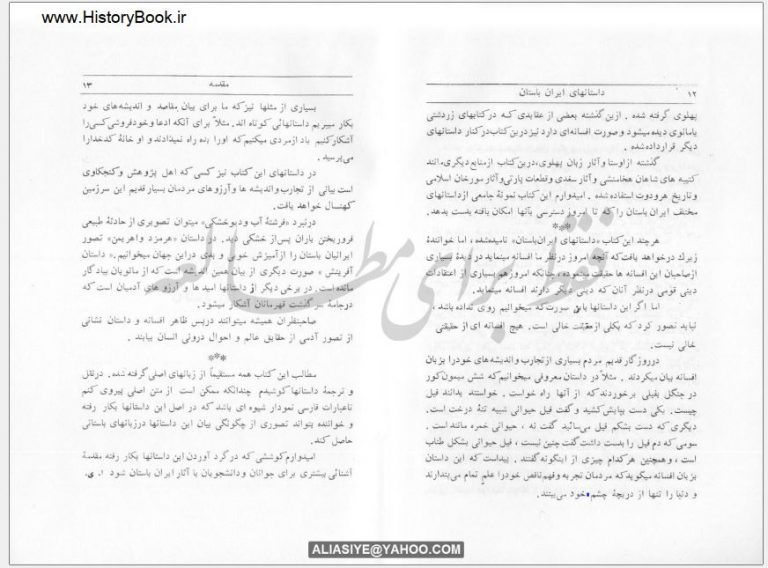 www.HistoryBook.ir
۱۲ داستانهای ایران باستان
پهلوی گرفته شده . ازین گذشته بعضی از عقایدی که در کتابهای زردشتی
یا مانوی دیده میشود و صورت افسانه‌ای دارد نیز درین کتاب در کنار داستانهای
دیگر قرار داده شده .
گذشته از اوستا و آثار زبان پهلوی، درین کتاب از منابع دیگری، مانند
کتیبه های شاهان هخامنشی و آثار سغدی و قطعات پارتی و آثار مورخان اسلامی
و تاریخ هرودوت استفاده شده . امیدوارم این کتاب نمونهٔ جامعی از داستانهای
مختلف ایران باستان را که تا امروز دسترسی بآنها امکان یافته بدست بدهد.
***
هر چند این کتاب «داستانهای ایران باستان» نامیده شده ، اما خوانندهٔ
زیرک در خواهد یافت که آنچه امروز در نظر ما افسانه مینماید در دیدهٔ بسیاری
از صاحبان این افسانه ها حقیقت مینموده، چنانکه امروز هم بسیاری از اعتقادات
دینی قومی در نظر آنان که دینی دیگر دارند افسانه مینماید.
اما اگر این داستانها باین صورت که میخوانیم روی نداده باشد ،
نباید تصور کرد که بکلی از حقیقت خالی است . هیچ افسانه ای از حقیقتی
خالی نیست.
در روزگار قدیم مردم بسیاری از تجارب و اندیشه های خود را بزبان
افسانه بیان میکردند . مثلاً در داستان معروفی میخوانیم که شش میمون کور
در جنگل بفیلی برخوردند که از آنها راه خواست . خواستند بدانند فیل
چیست . یکی دست بپایش کشید و گفت فیل حیوانی شبیه تنهٔ درخت است .
دیگری که دست بشکم فیل می‌سائید گفت نه ، حیوانی خمره مانند است .
سومی که دم فیل را بدست داشت گفت چنین نیست ، فیل حیوانی بشکل طناب
است ، و همچنین هر کدام چیزی از اینگونه گفتند . پیداست که این داستان
بزبان افسانه میگوید که مردمان تجربه و فهم ناقص خود را علم تمام می‌پندارند
و دنیا را تنها از دریچهٔ چشم خود می‌بینند .
مقدمه ۱۳
بسیاری از مثلها نیز که ما برای بیان مقاصد و اندیشه‌های خود
بکار میبریم داستانهائی کوتاه اند. مثلاً برای آنکه ادعا و خودفروشی کسی را
آشکار کنیم یاد از مردی میکنیم که او را بده راه نمیدادند و او خانهٔ کدخدا را
می‌پرسید .
در داستانهای این کتاب نیز کسی که اهل پژوهش و کنجکاوی
است بیانی از تجارب و اندیشه ها و آرزوهای مردمان بسیار قدیم این سرزمین
کهنسال خواهد یافت.
در نبرد «فرشتهٔ آب و دیو خشکی» میتوان تصویری از حادثهٔ طبیعی
فرو ریختن باران پس از خشکی دید. در داستان «هرمزد و اهریمن» تصور
ایرانیان باستان را از آمیزش خوبی و بدی در این جهان میخوانیم. « داستان
آفرینش » صورت دیگری از بیان همین اندیشه است که از مانویان بیادگار
مانده است. در برخی دیگر از داستانها امید ها و آرزو های آدمیان است که
در جامهٔ سرگذشت قهرمانان آشکار میشود.
صاحبنظران همیشه میتوانند در پس ظاهر افسانه و داستان نشانی
از تصور آدمی از حقایق عالم و احوال درونی انسان بیابند .
***
مطالب این کتاب همه مستقیماً از زبانهای اصلی گرفته شده. در نقل
و ترجمهٔ داستانها کوشیدم چندانکه ممکن است از متن اصلی پیروی کنم
تا عبارات فارسی نمودار شیوه ای باشد که در اصل این داستانها بکار رفته
و خواننده بتواند تصوری از چگونگی بیان این داستانها در زبانهای باستانی
حاصل کند.
امیدوارم کوششی که در گرد آوردن این داستانها بکار رفته مقدمهٔ
آشنائی بیشتری برای جوانان و دانشجویان با آثار ایران باستان شود ا. ی.
فقط برای مطالعه
ALIASIYE@YAHOO.COM